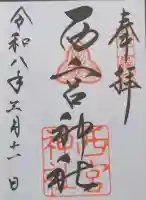 奉拝
西宮神社
令和八年三月十一日
西宮
神社